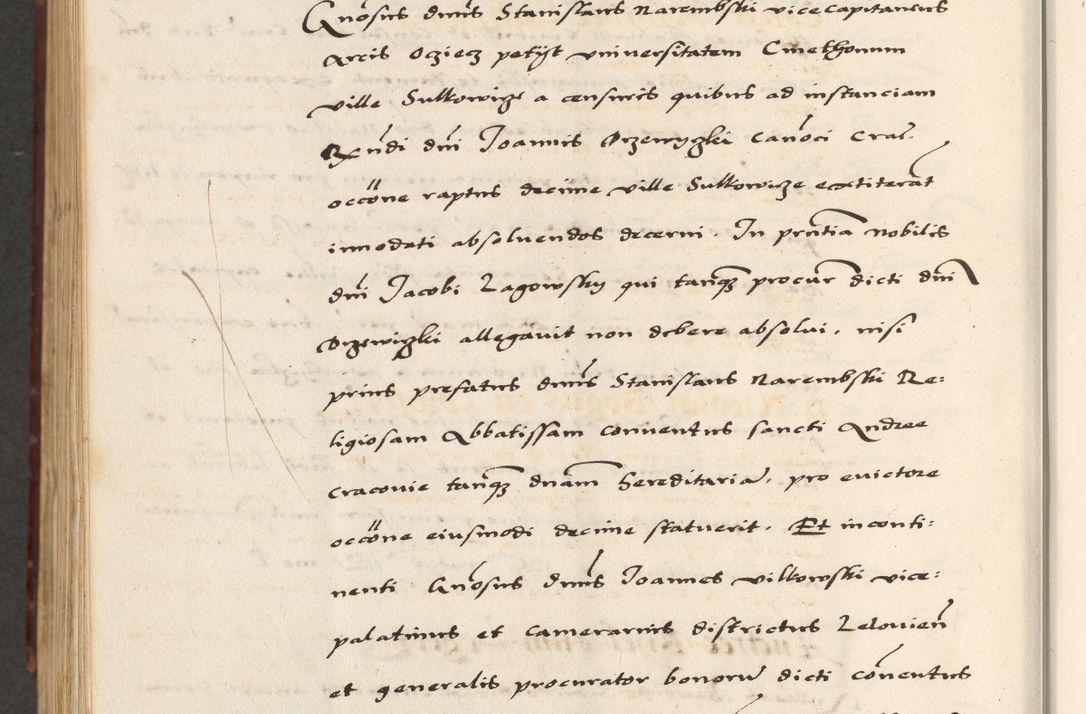 Gnosus dnus Stanislaus Narembski vicecapitaneus
Arcis Ocziecz petijt universitatem Cmethonum
ville Sulkowicze a censuris quibus ad instanciam
Rndi dni Joannis Orzewyzki Canoci Crac.
occone raptus decime ville Sulkowicze extiterant
innodati absoluendos decerni. In pntia nobilis
dni Jacobi Lagowsky qui tanqz procur dicti dni
Orzewiczki allegavit non debere absolui, nisi
prius prefatus dnus Stanislaus Narembski Re:
ligiosam Abbatissam conuentus sancti Andree
Cracovie tanqz dnam hereditariã, pro evictore
occone eiusmodi decime statuerit. Et inconti:
nenti Gnosus dnus Joannes Vilkowski vice:
palatinus et camerarius districtus Lelouien
et generalis procurator bonorũ dicti côuentus